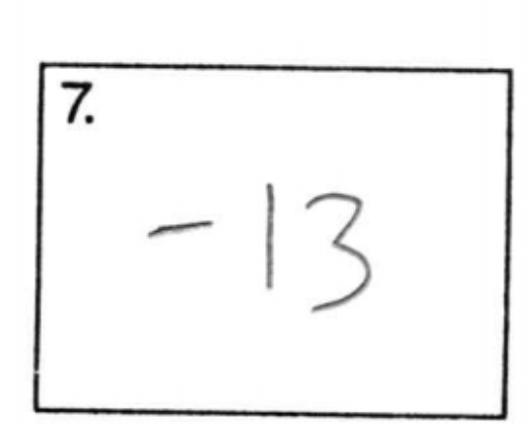 7.
-13